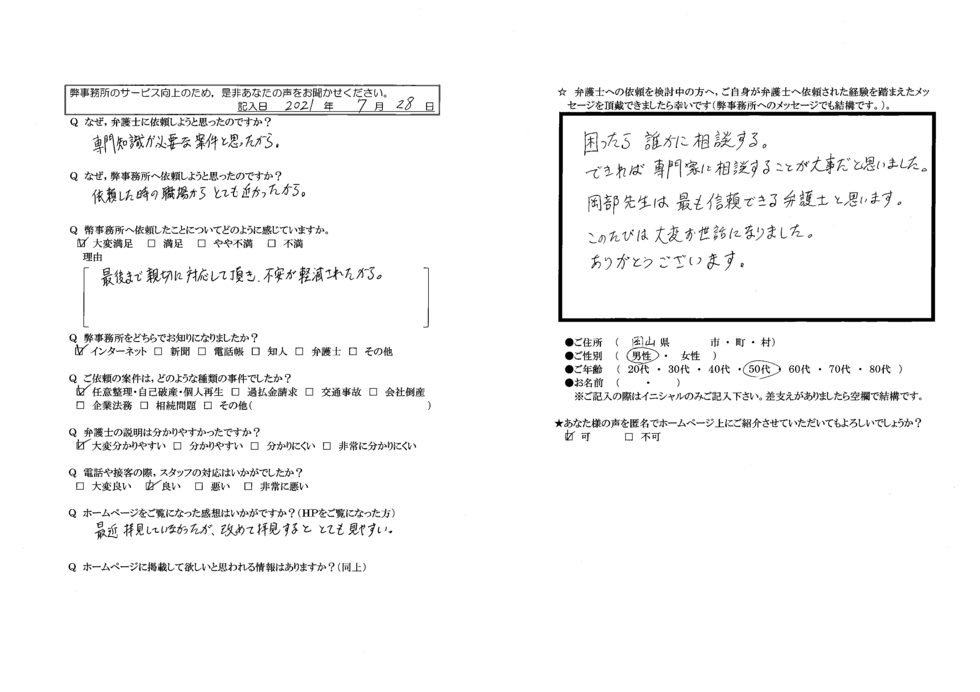 弊事務所のサービス向上のため，是非あなたの声をお聞かせください。
記入日 2021 年 7 月 28 日
Q なぜ，弁護士に依頼しようと思ったのですか？
専門知識が必要な案件と思ったから。
Q なぜ，弊事務所へ依頼しようと思ったのですか？
依頼した時の職場からとても近かったから。
Q 幣事務所へ依頼したことについてどのように感じていますか。
☑ 大変満足 □ 満足 □ やや不満 □ 不満
理由
最後まで親切に対応して頂き、不安が軽減されたから。
Q 弊事務所をどちらでお知りになりましたか？
☑ インターネット □ 新聞 □ 電話帳 □ 知人 □ 弁護士 □ その他
Q ご依頼の案件は，どのような種類の事件でしたか？
☑ 任意整理・自己破産・個人再生 □ 過払金請求 □ 交通事故 □ 会社倒産
□ 企業法務 □ 相続問題 □ その他( )
Q 弁護士の説明は分かりやすかったですか？
☑ 大変分かりやすい □ 分かりやすい □ 分かりにくい □ 非常に分かりにくい
Q 電話や接客の際，スタッフの対応はいかがでしたか？
□ 大変良い ☑ 良い □ 悪い □ 非常に悪い
Q ホームページをご覧になった感想はいかがですか？(HPをご覧になった方)
最近拝見していなかったが、改めて拝見するととても見やすい。
Q ホームページに掲載して欲しいと思われる情報はありますか？(同上)
☆ 弁護士への依頼を検討中の方へ，ご自身が弁護士へ依頼された経験を踏まえたメッ
セージを頂戴できましたら幸いです(弊事務所へのメッセージでも結構です。)。
困ったら誰かに相談する。
できれば専門家に相談することが大事だと思いました。
岡部先生は最も信頼できる弁護士と思います。
このたびは大変お世話になりました。
ありがとうございます。
●ご住所 ( 岡山 県 市・町・村)
●ご性別 ( 男性 ・ 女性 )
●ご年齢 ( 20代 ・ 30代 ・ 40代 ・ 50代 ・ 60代 ・ 70代 ・ 80代 )
●お名前 ( ・ )
※ご記入の際はイニシャルのみご記入下さい。差支えがありましたら空欄で結構です。
★あなた様の声を匿名でホームページ上にご紹介させていただいてもよろしいでしょうか？
☑ 可 □ 不可